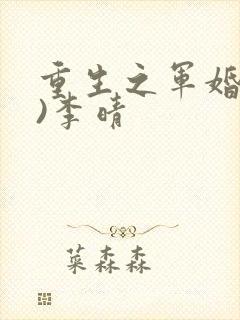 重生之军婚
)李晴
菜森森